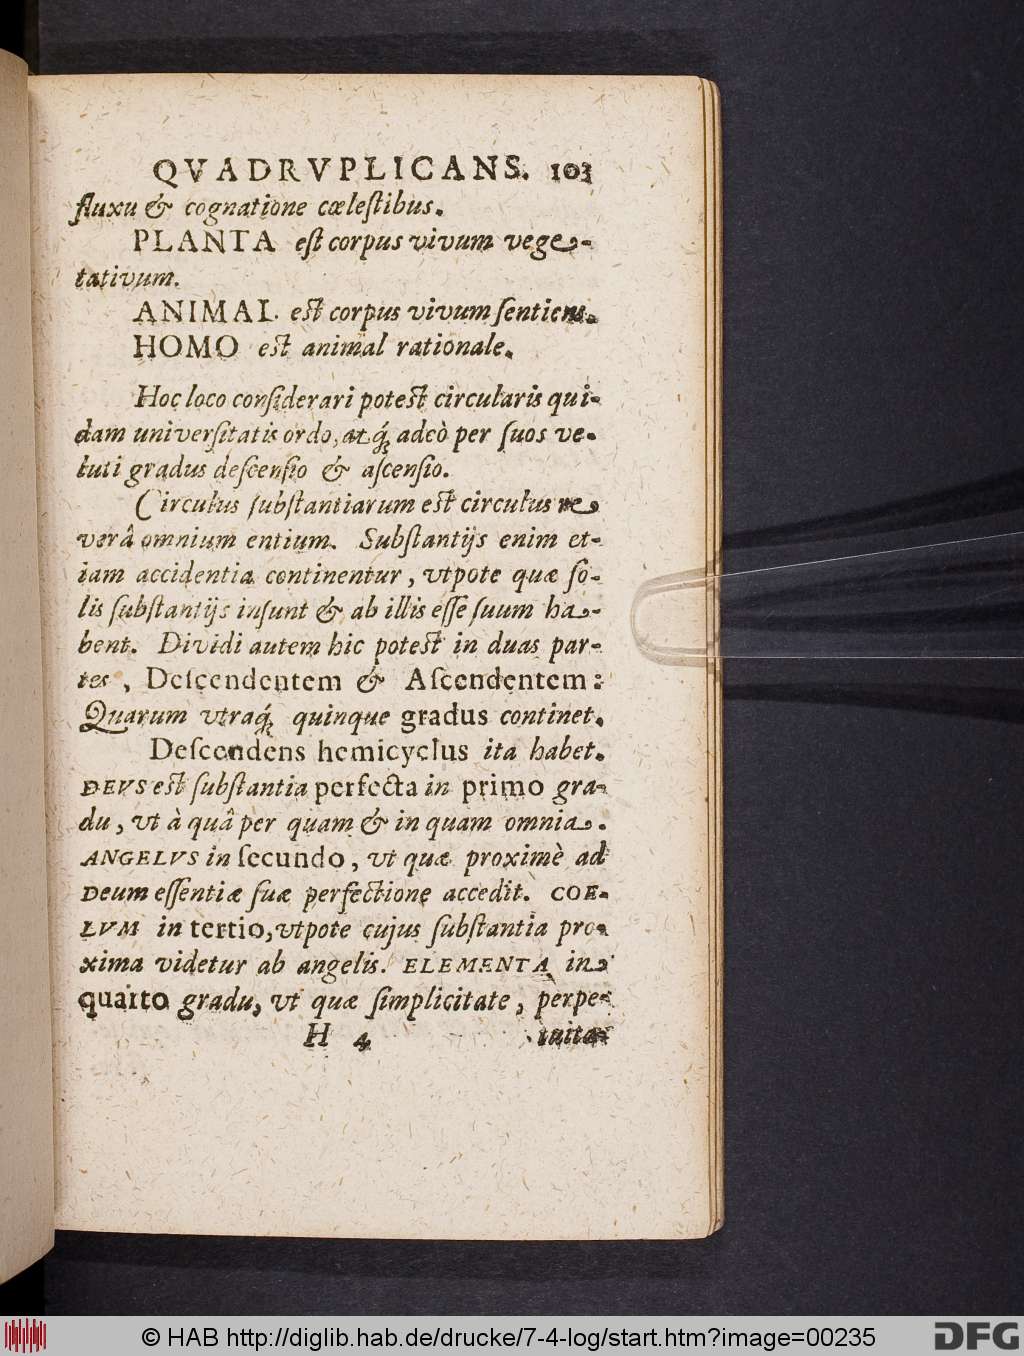 QVADRVPLICANS. 103
fluxu & cognatione cœleſtibus.
PLANTA eſt corpus vivum vege-
tativum.
ANIMAL eſt corpus vivum ſentiens.
HOMO eſt animal rationale.
Hoc loco conſiderari poteſt circularis qui-
dam univerſitatis ordo, atq́; adeò per ſuos ve-
luti gradus deſcenſio & aſcenſio.
Circulus ſubſtantiarum eſt circulus re
verâ omnium entium. Subſtantijs enim et-
iam accidentia continentur, vtpote quæ ſo-
lis ſubſtantijs inſunt & ab illis eſſe ſuum ha-
bent. Dividi autem hic poteſt in duas par-
tes, Deſcendentem & Aſcendentem:
Quarum vtraq́; quinque gradus continet.
Deſcendens hemicyclus ita habet.
DEVS eſt ſubſtantia perfecta in primo gra-
du, vt à quâ per quam & in quam omnia.
ANGELVS in ſecundo, vt quæ proximè ad
Deum eſſentiæ ſuæ perfectione accedit. COE-
LVM in tertio, vtpote cujus ſubſtantia pro-
xima videtur ab angelis. ELEMENTA in
quarto gradu, vt quæ ſimplicitate, perpe-
H 4 tuita-
© HAB http://diglib.hab.de/drucke/7-4-log/start.htm?image=00235
DFG